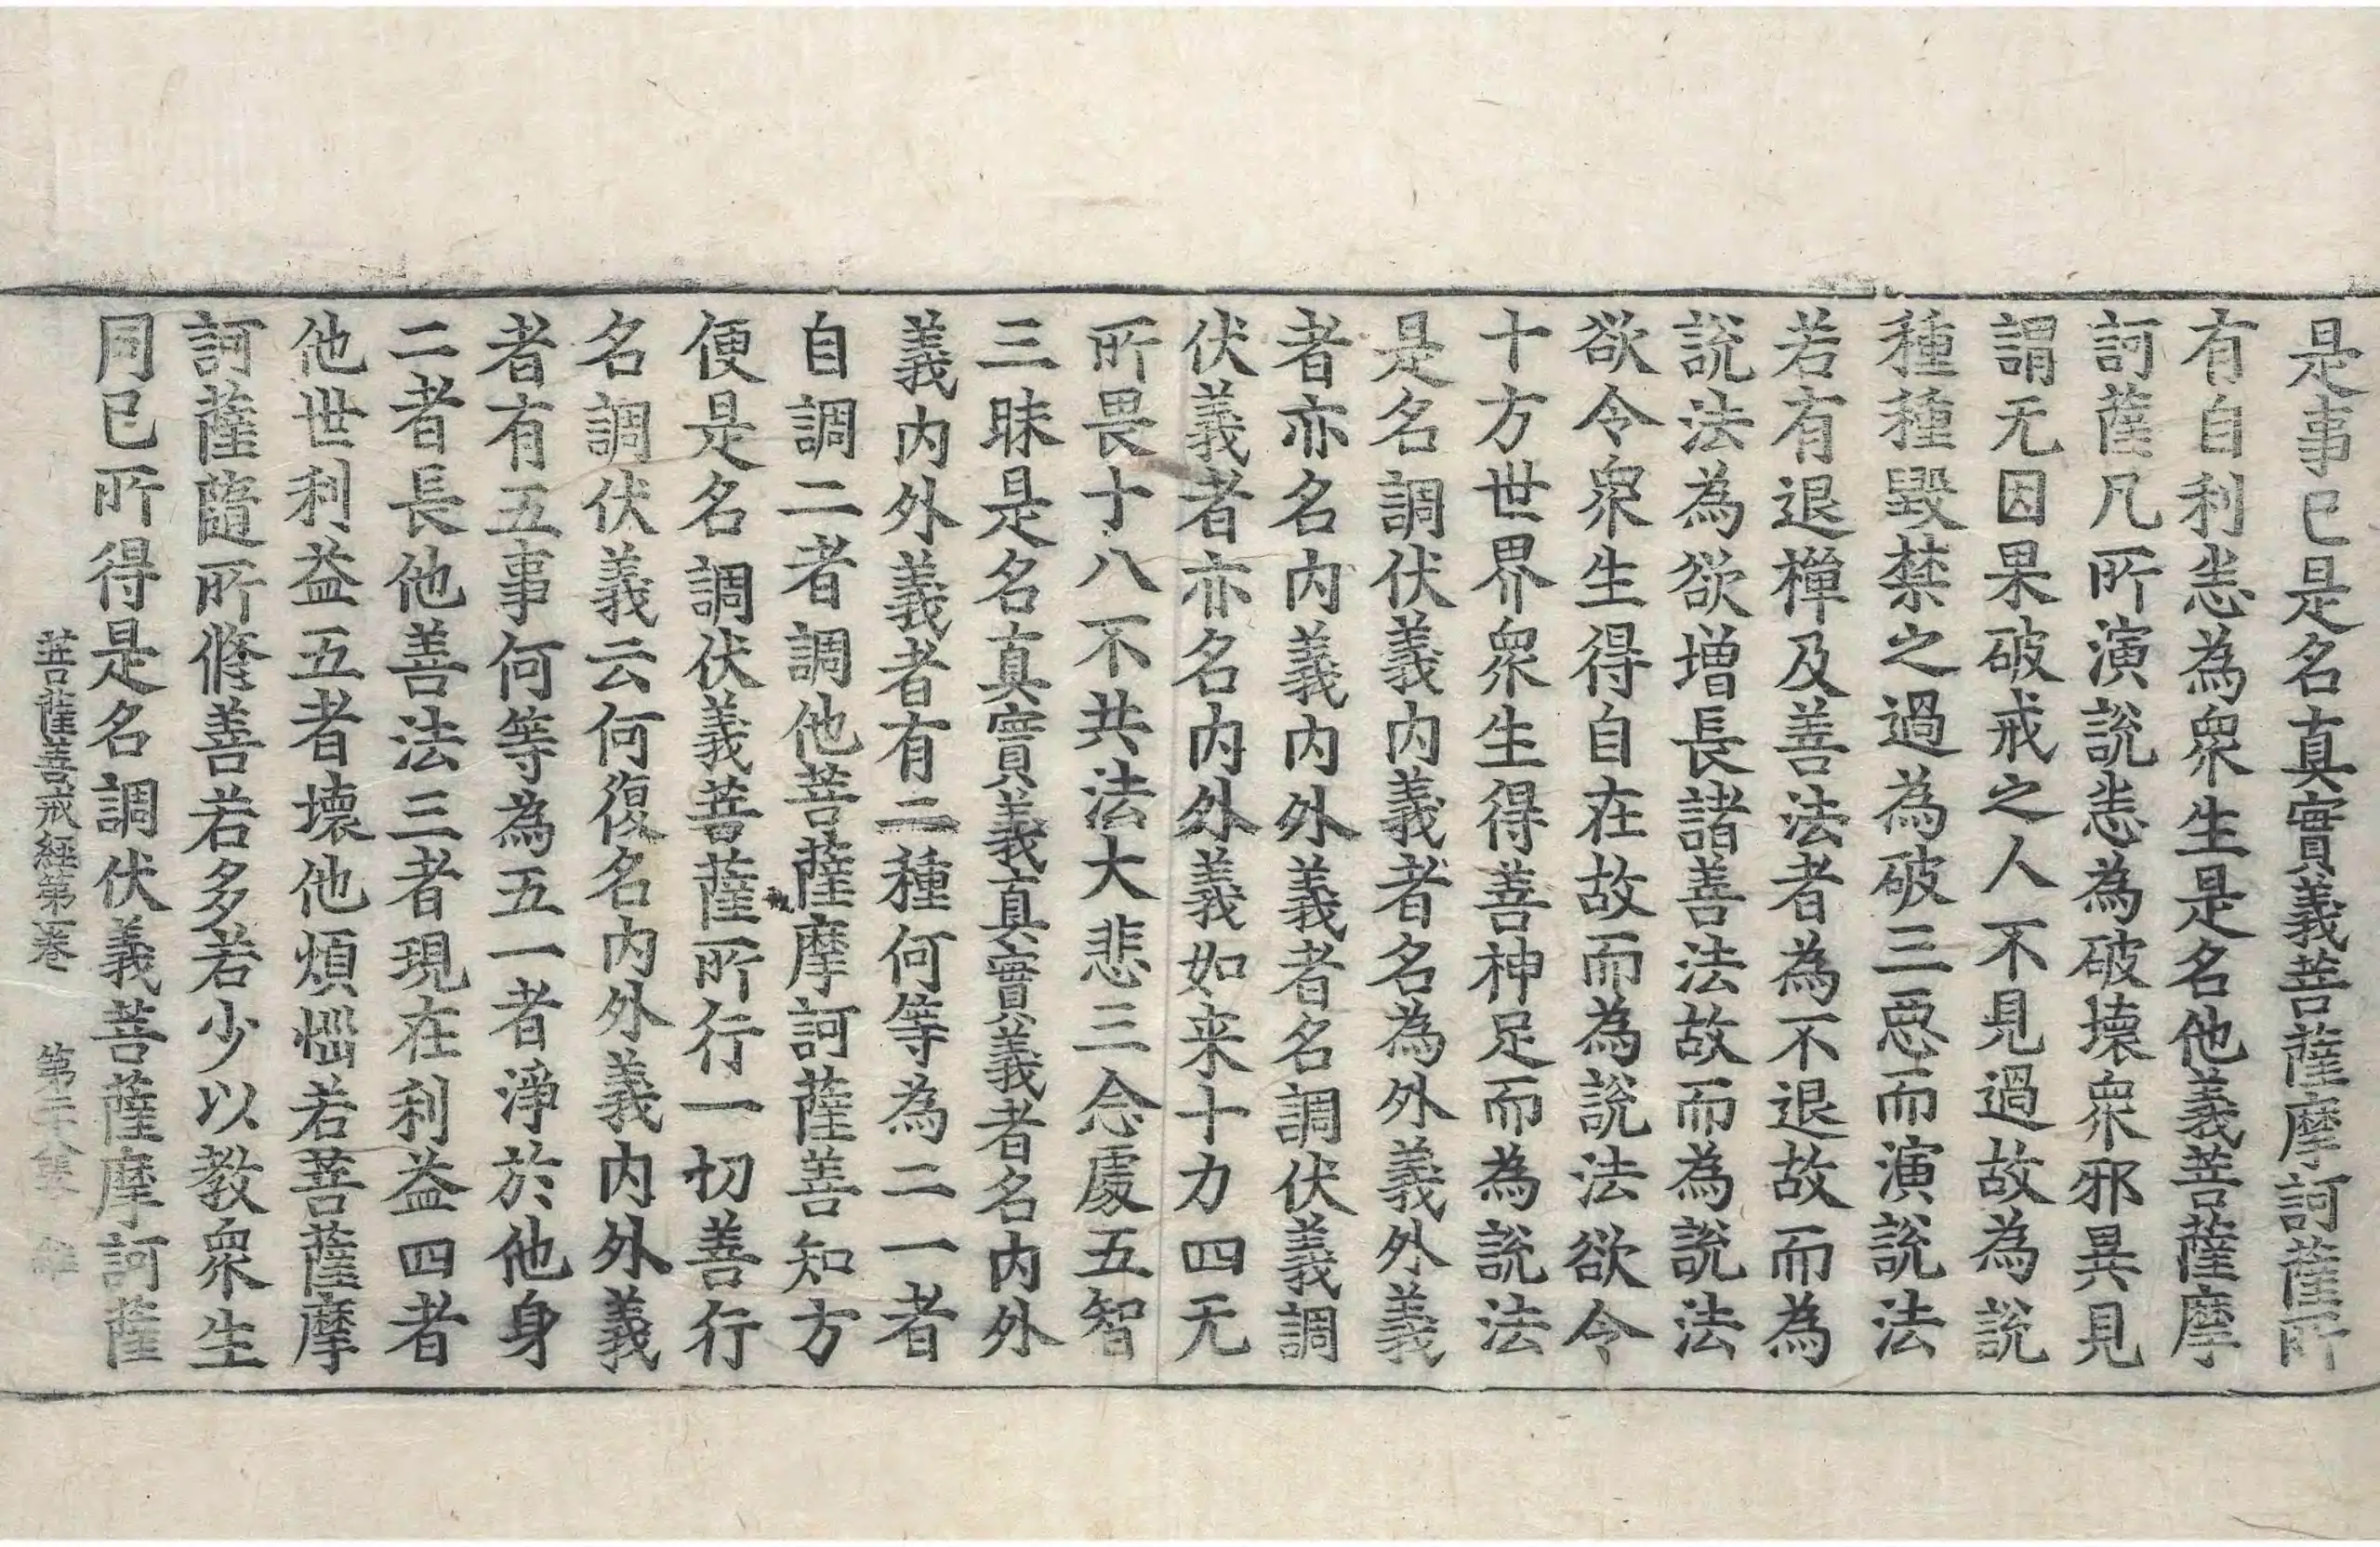 是事已是名真實義菩薩摩訶薩所
有自利恙為衆生是名他義菩薩摩
訶薩凡所演說恙為破壞衆邪異見
謂无因果破戒之人不見過故為說
種種毀禁之過為破三惡而演說法
若有退禪及善法者為不退故而為
說法為欲增長諸善法故而為說法
欲令衆生得自在故而為說法欲令
十方世界衆生得善神足而為說法
是名調伏義內義者名為外義外義
者亦名內義內外義者名調伏義調
伏義者亦名內外義如来十力四无
所畏十八不共法大悲三念處五智
三昧是名真實義真實義者名內外
義內外義者有二種何等為二一者
自調二者調他菩薩摩訶薩善知方
便是名調伏義菩薩所行一切善行
名調伏義云何復名內外義內外義
者有五事何等為五一者淨於他身
二者長他善法三者現在利益四者
他世利益五者壞他煩惱若菩薩摩
訶薩隨所修善若多若少以教衆生
同已所得是名調伏義菩薩摩訶薩
菩薩善戒經第二卷 第二